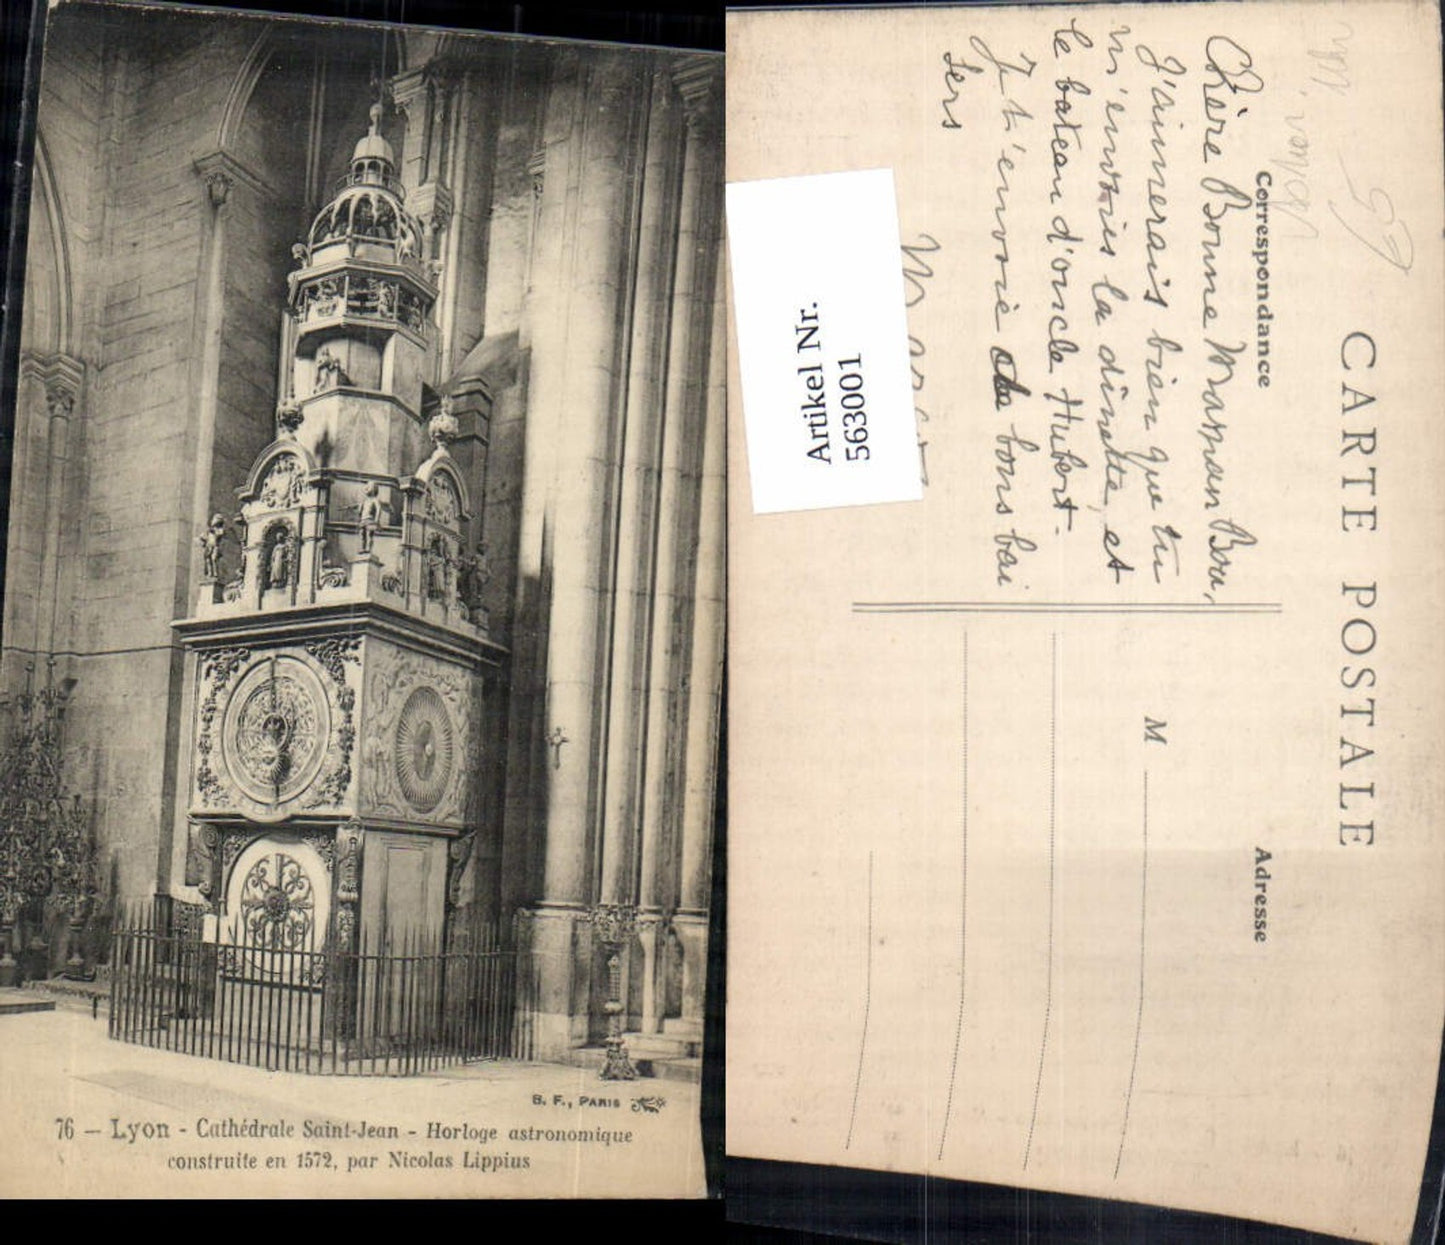 B. F., PARIS
76 — Lyon - Cathédrale Saint-Jean - Horloge astronomique
construite en 1572, par Nicolas Lippius
CARTE POSTALE
Correspondance
Adresse
M
Chère Bonne Maman Bou,
J'aimerais bien que tu
m'envoies la dînette, et
le bateau d'oncle Hubert.
Je t'envoie de bons bai
sers
Artikel Nr.
563001